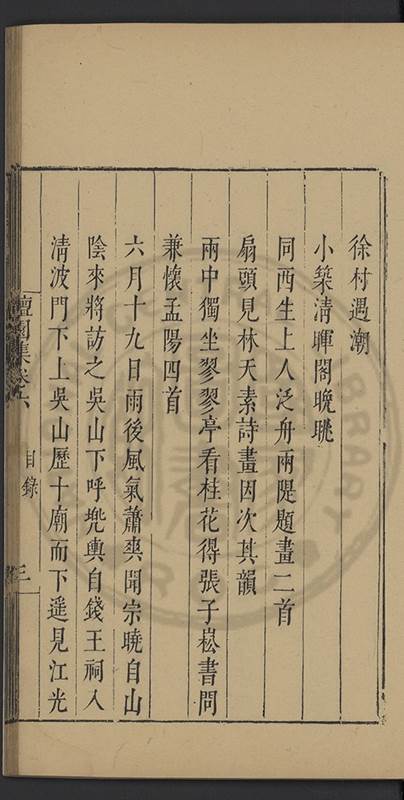 徐村遇潮
小築清暉閣晚眺
同西生上人泛舟兩隄題畫二首
扇頭見林天素詩畫因次其韻
雨中獨坐翏翏亭看桂花得張子崧書問
兼懷孟陽四首
六月十九日雨後風氣蕭爽聞宗曉自山
陰來將訪之吳山下呼兠輿自錢王祠入
清波門下上吳山歷十廟而下遥見江光
檀園集卷六
目錄
三